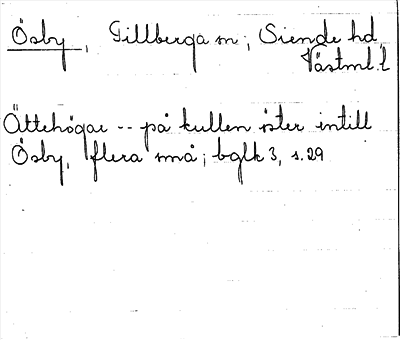 Ösby, Gillberga sn; Siende hd,
Västml. l
Ättehögar -- på kullen öster intill
Ösby, flera små; bglk 3, s. 29